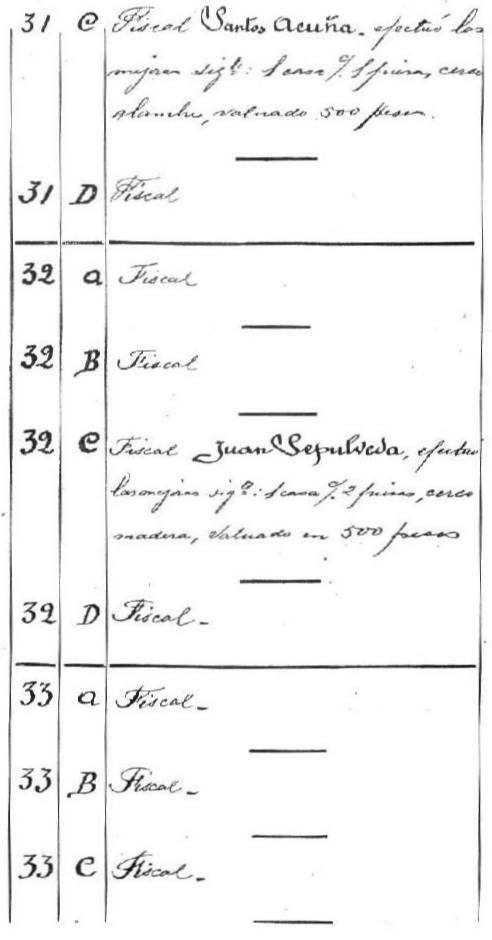 31 C Fiscal Santos Acuña - efectuó las
mejoras sigts: 1 casa c/. 1 pieza, cerco
alambre, valuado 500 pesos.
31 D Fiscal
32 a Fiscal
32 B Fiscal
32 C Fiscal Juan Sepulveda, efectuó
las mejoras sigts: 1 casa c/. 2 piezas, cerco
madera, valuado en 500 pesos
32 D Fiscal -
33 a Fiscal -
33 B Fiscal -
33 C Fiscal -